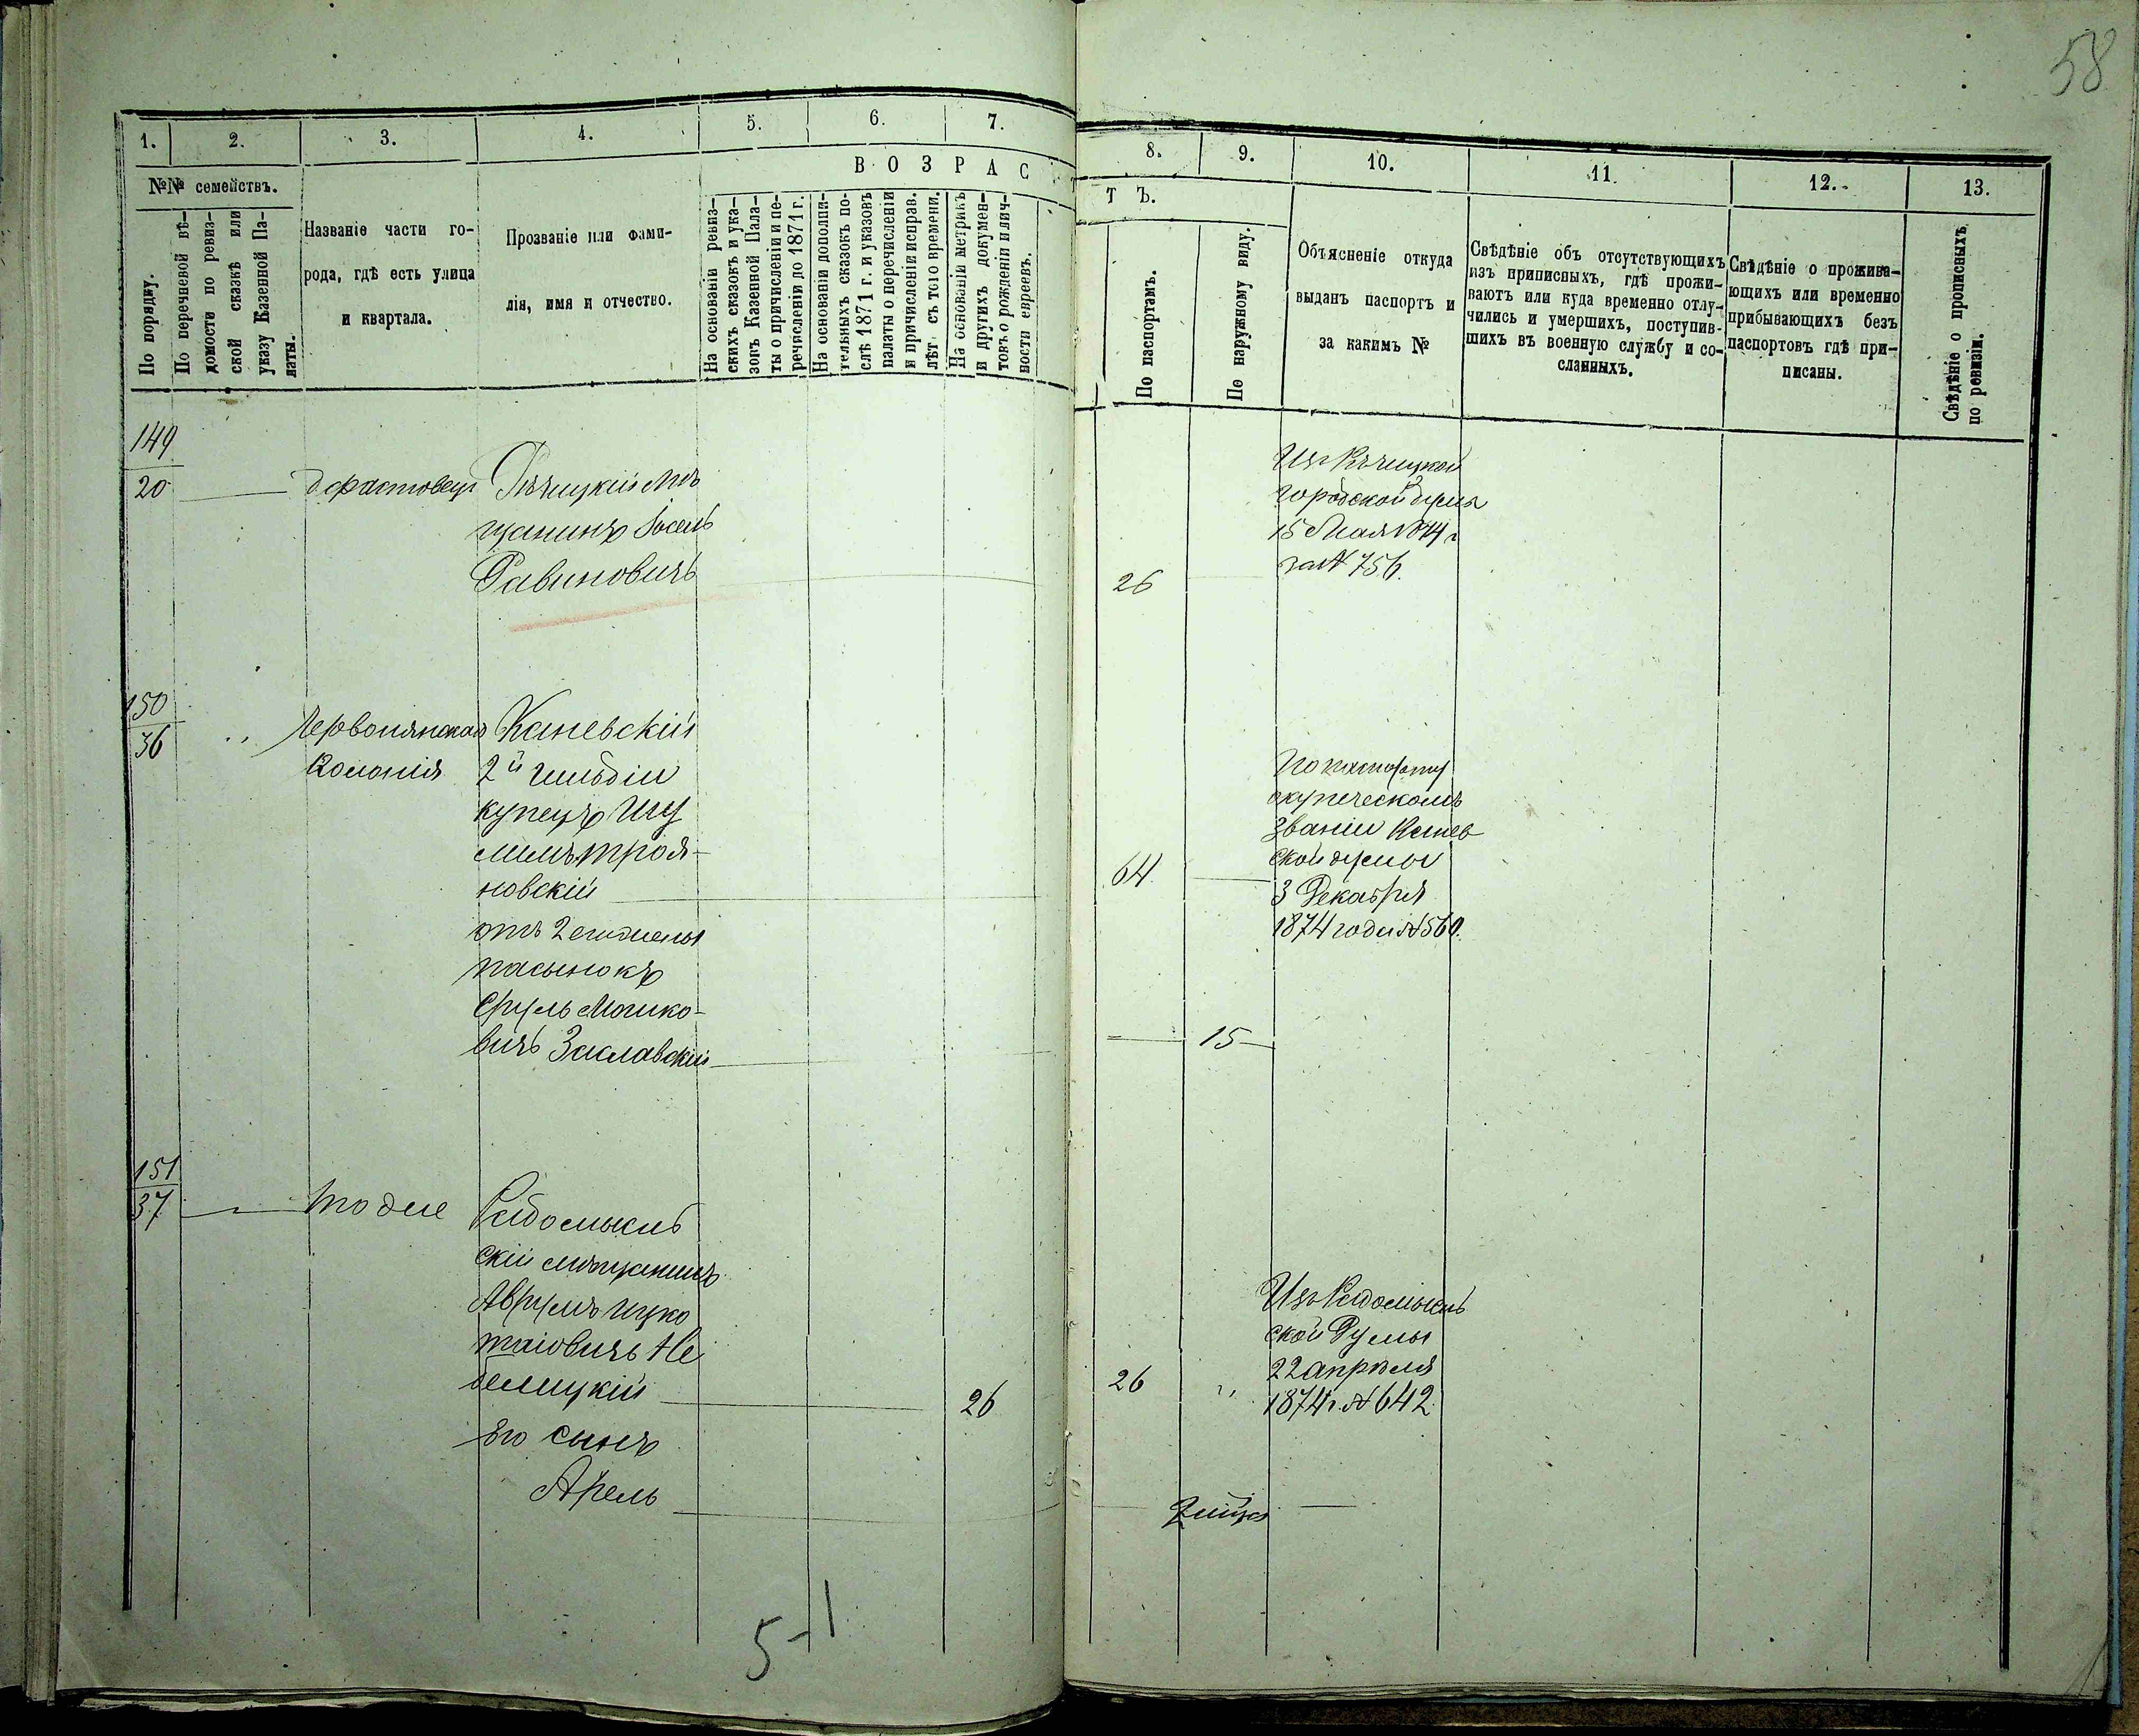 58
1. 2. 3. 4. 5. 6. 7. 8. 9. 10. 11. 12. 13.
№№ семействъ.
По порядку.
По перечневой вѣ-
домости по ревиз-
ской сказкѣ или
указу Казенной Па-
латы.
Названіе части го-
рода, гдѣ есть улица
и квартала.
Прозваніе или фами-
лія, имя и отчество.
ВОЗРАСТЪ.
На основаніи ревиз-
скихъ сказокъ и ука-
зовъ Казенной Пала-
ты о причисленіи и пе-
речисленіи до 1871 г.
На основаніи дополни-
тельныхъ сказокъ по-
слѣ 1871 г. и указовъ
палаты о перечисленіи
и причисленіи исправ.
лѣт. съ того времени.
На основаніи метрикъ
и другихъ докумен-
товъ о рожденіи и лич-
ности евреевъ.
По паспортамъ.
По наружному виду.
Объясненіе откуда
выданъ паспортъ и
за какимъ №
Свѣдѣніе объ отсутствующихъ
изъ приписныхъ, гдѣ прожи-
ваютъ или куда временно отлу-
чились и умершихъ, поступив-
шихъ въ военную службу и со-
сланныхъ.
Свѣдѣніе о прожива-
ющихъ или временно
прибывающихъ безъ
паспортовъ гдѣ при-
писаны.
Свѣдѣніе о прописныхъ
по ревизіи.
149
20
Рѣчицкій мѣ
щанинъ Іосель
Рабиновичъ
26
Изъ Рѣчицкой
городской думы
15 Мая 1874 г
за № 756.
150
36
Червонянская
Колонія
Каневскій
2й гильдіи
купецъ
троя-
новскій
его жены
пасынокъ
Сруль Мошко-
вичъ Заславскій
64
По паспорту
о купеческомъ
званіи Канев
ской думы
3 Декабря
1874 года № 560.
15
151
37
тоже
Радомысль
скій мѣщанинъ
Аврумъ Ицко
Не
белицкій
26
26
Изъ Радомысль
ской Думы
22 апрѣля
1874 г. № 642
его сынъ
Арель
5-1